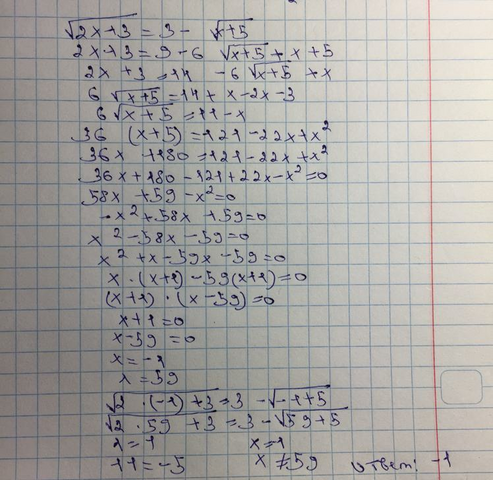 √2x+3 = 3 - √x+5
2x+3 = 9 - 6 √x+5 + x + 5
2x + 3 = 14 - 6 √x+5 + x
6 √x+5 = 14 + x - 2x - 3
6 √x+5 = 11 - x
36 (x+5) = 121 - 22x + x²
36x + 180 = 121 - 22x + x²
36x + 180 - 121 + 22x - x² = 0
58x + 59 - x² = 0
- x² + 58x + 59 = 0
x² - 58x - 59 = 0
x² + x - 59x - 59 = 0
x · (x+1) - 59(x+1) = 0
(x+1) · (x - 59) = 0
x+1 = 0
x - 59 = 0
x = -1
x = 59
√2 · (-1) + 3 = 3 - √-1+5
√2 · 59 + 3 = 3 - √59+5
1 = 1 x = 1
11 = -5 x ≠ 59 ответ: -1